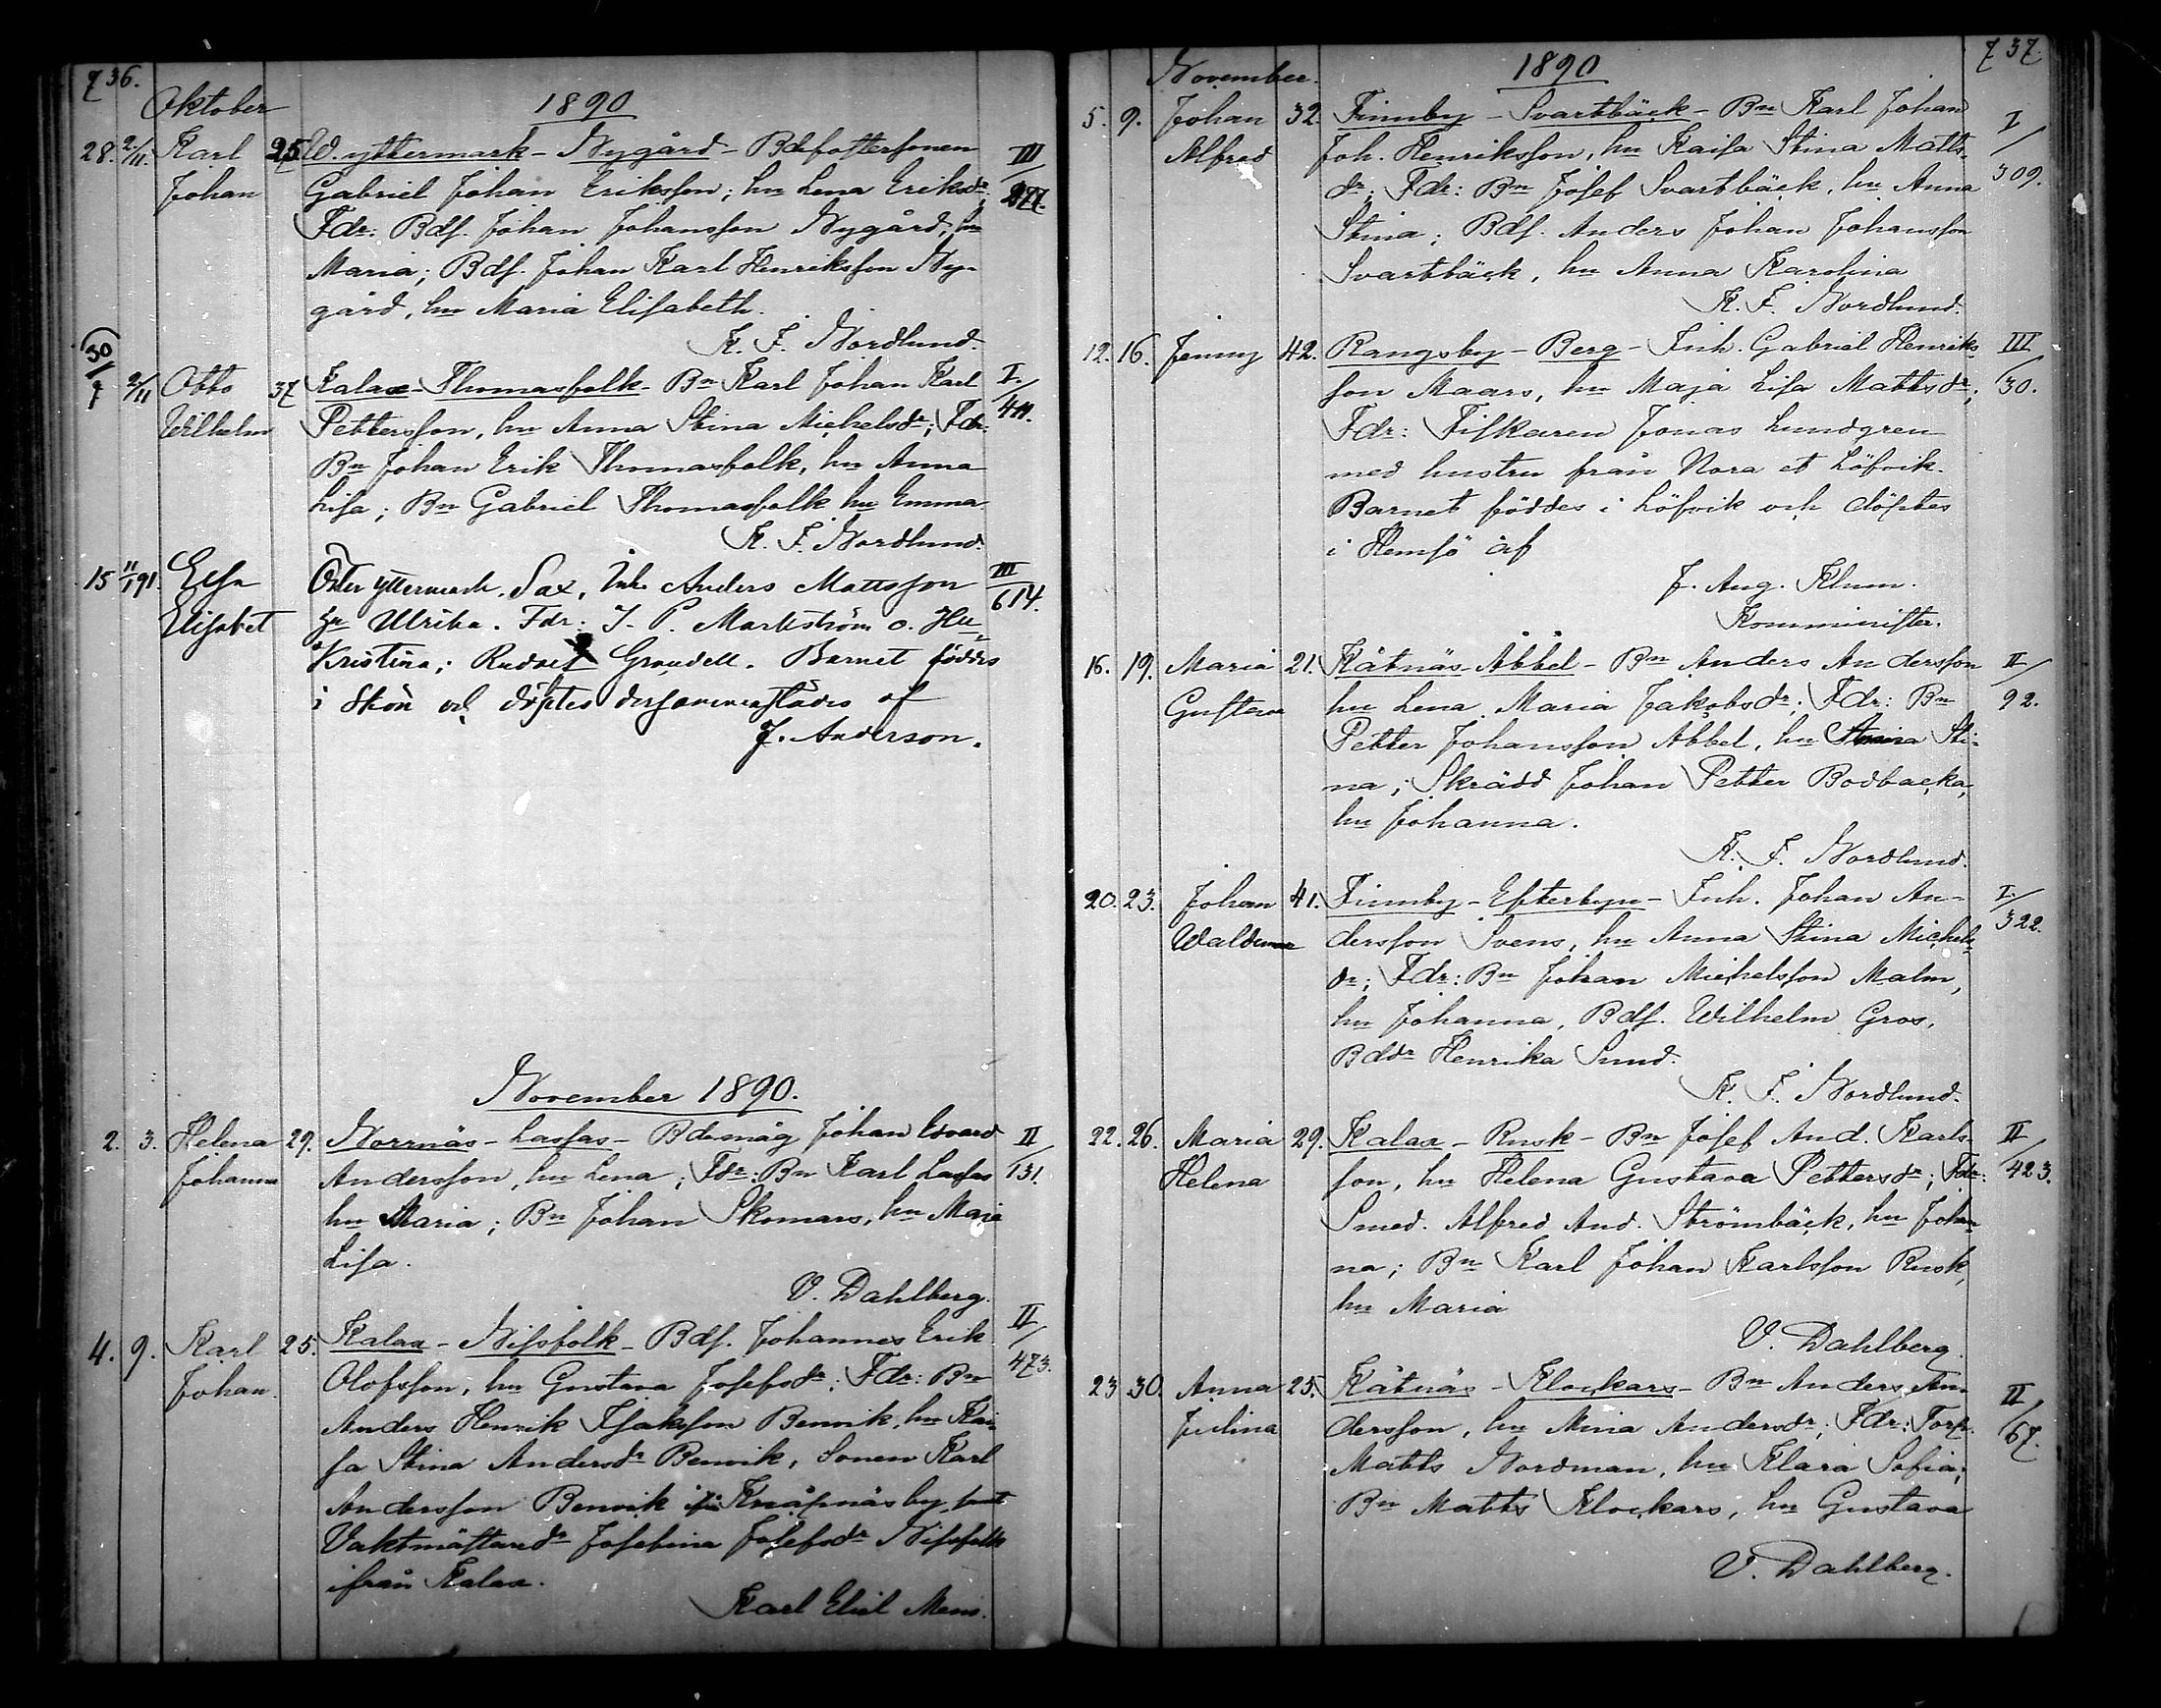 736.
Oktober 1890
28. 2/11. Karl 25. W. yttermark - Nygård - Bdfostersonen III/
Johan Gabriel Johan Eriksson; hu Lena Eriksdr; 277.
Fdr: Bds. Johan Johansson Nygård, hu
Maria; Bds. Johan Karl Henriksson Ny-
gård, hu Maria Elisabeth.
K. F. Nordlund.
30/7 2/11 Otto 37 Kalax - Thomasfolk - Bn Karl Johan Karl I./
Wilhelm Pettersson, hu Anna Stina Michelsdr; Fdr:
Bn Johan Erik Thomasfolk, hu Anna
Lisa; Bn Gabriel Thomasfolk hu Emma
K. F. Nordlund.
15 11/1 91. Elsa Öster yttermark. Sax, Inh. Anders Mattsson III/
Elisabet hu Ulrika. Fdr: J. P. Markström o. Hu 614.
Kristina; Rudolf Grandell. Barnet föddes
i Skön och döptes dersammastädes af
J. Anderson.
November 1890.
2. 3. Helena 29. Norrnäs - Lassas - Bdemåg Johan Edvard II/
Johanna Andersson, hu Lena; Fdr: Bn Karl Lassas 131.
hu Maria; Bn Johan Skomars, hu Maja
Lisa.
V. Dahlberg.
4. 9. Karl 25. Kalax - Nissfolk - Bds. Johannes Erik II/
Johan. Olofsson, hu Gustava Josefsdr; Fdr: Bn 473.
Anders Henrik Isaksson Benvik, hu Kai-
sa Stina Andersdr Benvik, Sonen Karl
Andersson Benvik ifrån Knåpnäs by samt
Vaktmästaredr Josefina Josefsdr Nissfolk
ifrån Kalax.
Karl Eliel Mens.
737.
November. 1890
5. 9. Johan 32. Finnby - Svartbäck - Bn Karl Johan I/
Alfred Joh. Henriksson, hu Kaisa Stina Matts- 309.
dr; Fdr: Bn Josef Svartbäck, hu Anna
Stina; Bds. Anders Johan Johansson
Svartbäck, hu Anna Karolina
K. F. Nordlund.
12. 16. Jenny 42. Rangsby - Berg - Inh. Gabriel Henriks III/
son Maars, hu Maja Lisa Mattsdr; 30.
Fdr: Fiskaren Jonas Lundgren
med hustru från Nora et Löfvik.
Barnet föddes i Löfvik och döptes
i Hemsö af
J. Aug. Klum.
Komminister.
16. 19. Maria 21. Kåtnäs Åbbel - Bn Anders Andersson II/
Gustava hu Lena Maria Jakobsdr; Fdr: Bn 92.
Petter Johansson Åbbel, hu Sti-
na; Skrädd Johan Petter Bodbacka,
hu Johanna.
K. F. Nordlund.
20. 23. Johan 41. Finnby - Efterbyn - Inh. Johan An- I./
Waldemar dersson Svens, hu Anna Stina Michels- 322.
dr; Fdr: Bn Johan Michelsson Malm,
hu Johanna, Bds. Wilhelm Gros,
Bddr Henrika Sund.
K. F. Nordlund.
22. 26. Maria 29. Kalax - Rusk - Bn Josef And. Karls- II/
Helena son, hu Helena Gustava Pettersdr; Fdr: 423.
Smed. Alfred And. Strömbäck, hu Johan-
na; Bn Karl Johan Karlsson Rusk,
hu Maria
V. Dahlberg.
23 30. Anna 25. Kåtnäs - Klockars - Bn Anders An- II/
Julina dersson, hu Mina Andersdr; Fdr: Torp. 67.
Matts Nordman, hu Klara Sofia;
Bn Matts Klockars, hu Gustava
V. Dahlberg.